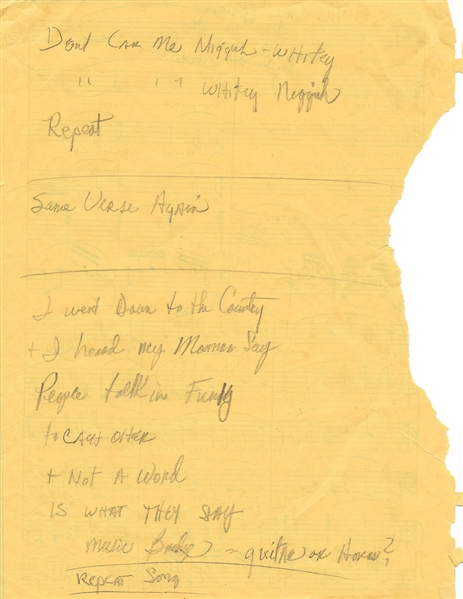 Dont Call Me Nigguh - Whitey
" " " Whitey Nigguh
Repeat
Same Verse Again
I went Down to the Country
+ I heard my Momma Say
People talk in Funny
to each other
+ Not A Word
IS WHAT THEY SAY
music Bridge - guitar or Horns?
REPEAT Song